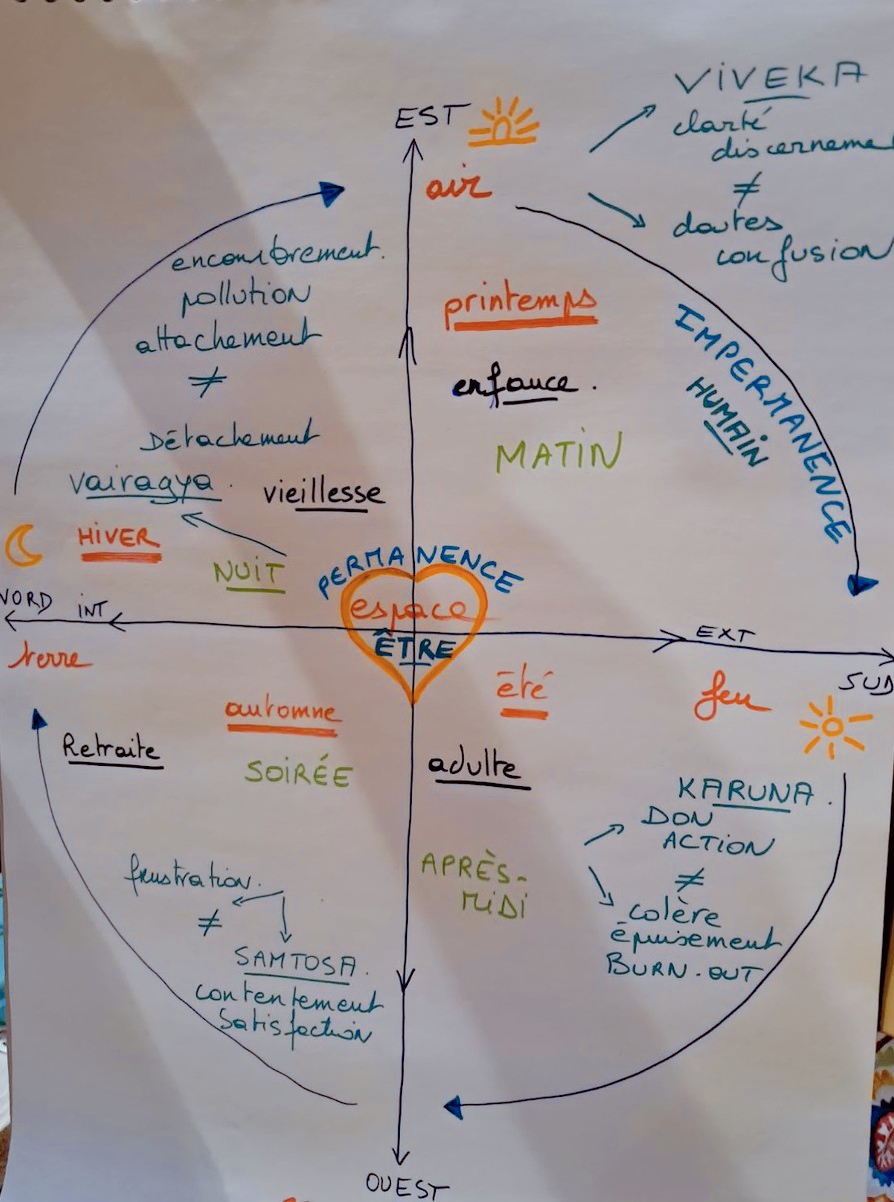 EST
air
VIVEKA
clarté
discerneme
≠
doutes
confusion
encombrement.
pollution
attachement
≠
Détachement
Vairagya.
vieillesse
HIVER
NUIT
printemps
enfance.
MATIN
IMPERMANENCE
HUMAIN
PERMANENCE
espace
ÊTRE
NORD INT
terre
EXT
SUD
automne
Retraite
SOIRÉE
frustration.
≠
SAMTOSA.
contentement
Satisfaction
été
feu
adulte
APRÈS-
MIDI
KARUNA.
DON
ACTION
≠
colère
épuisement
BURN-OUT
OUEST